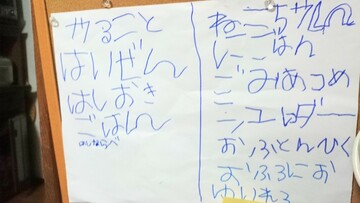 やること
はいぜん
はしおき
ごはん
のならべ
ねこちゃん
にごはん
ごみあつめ
シュレダー
おふとんひく
おふろにお
ゆいれる